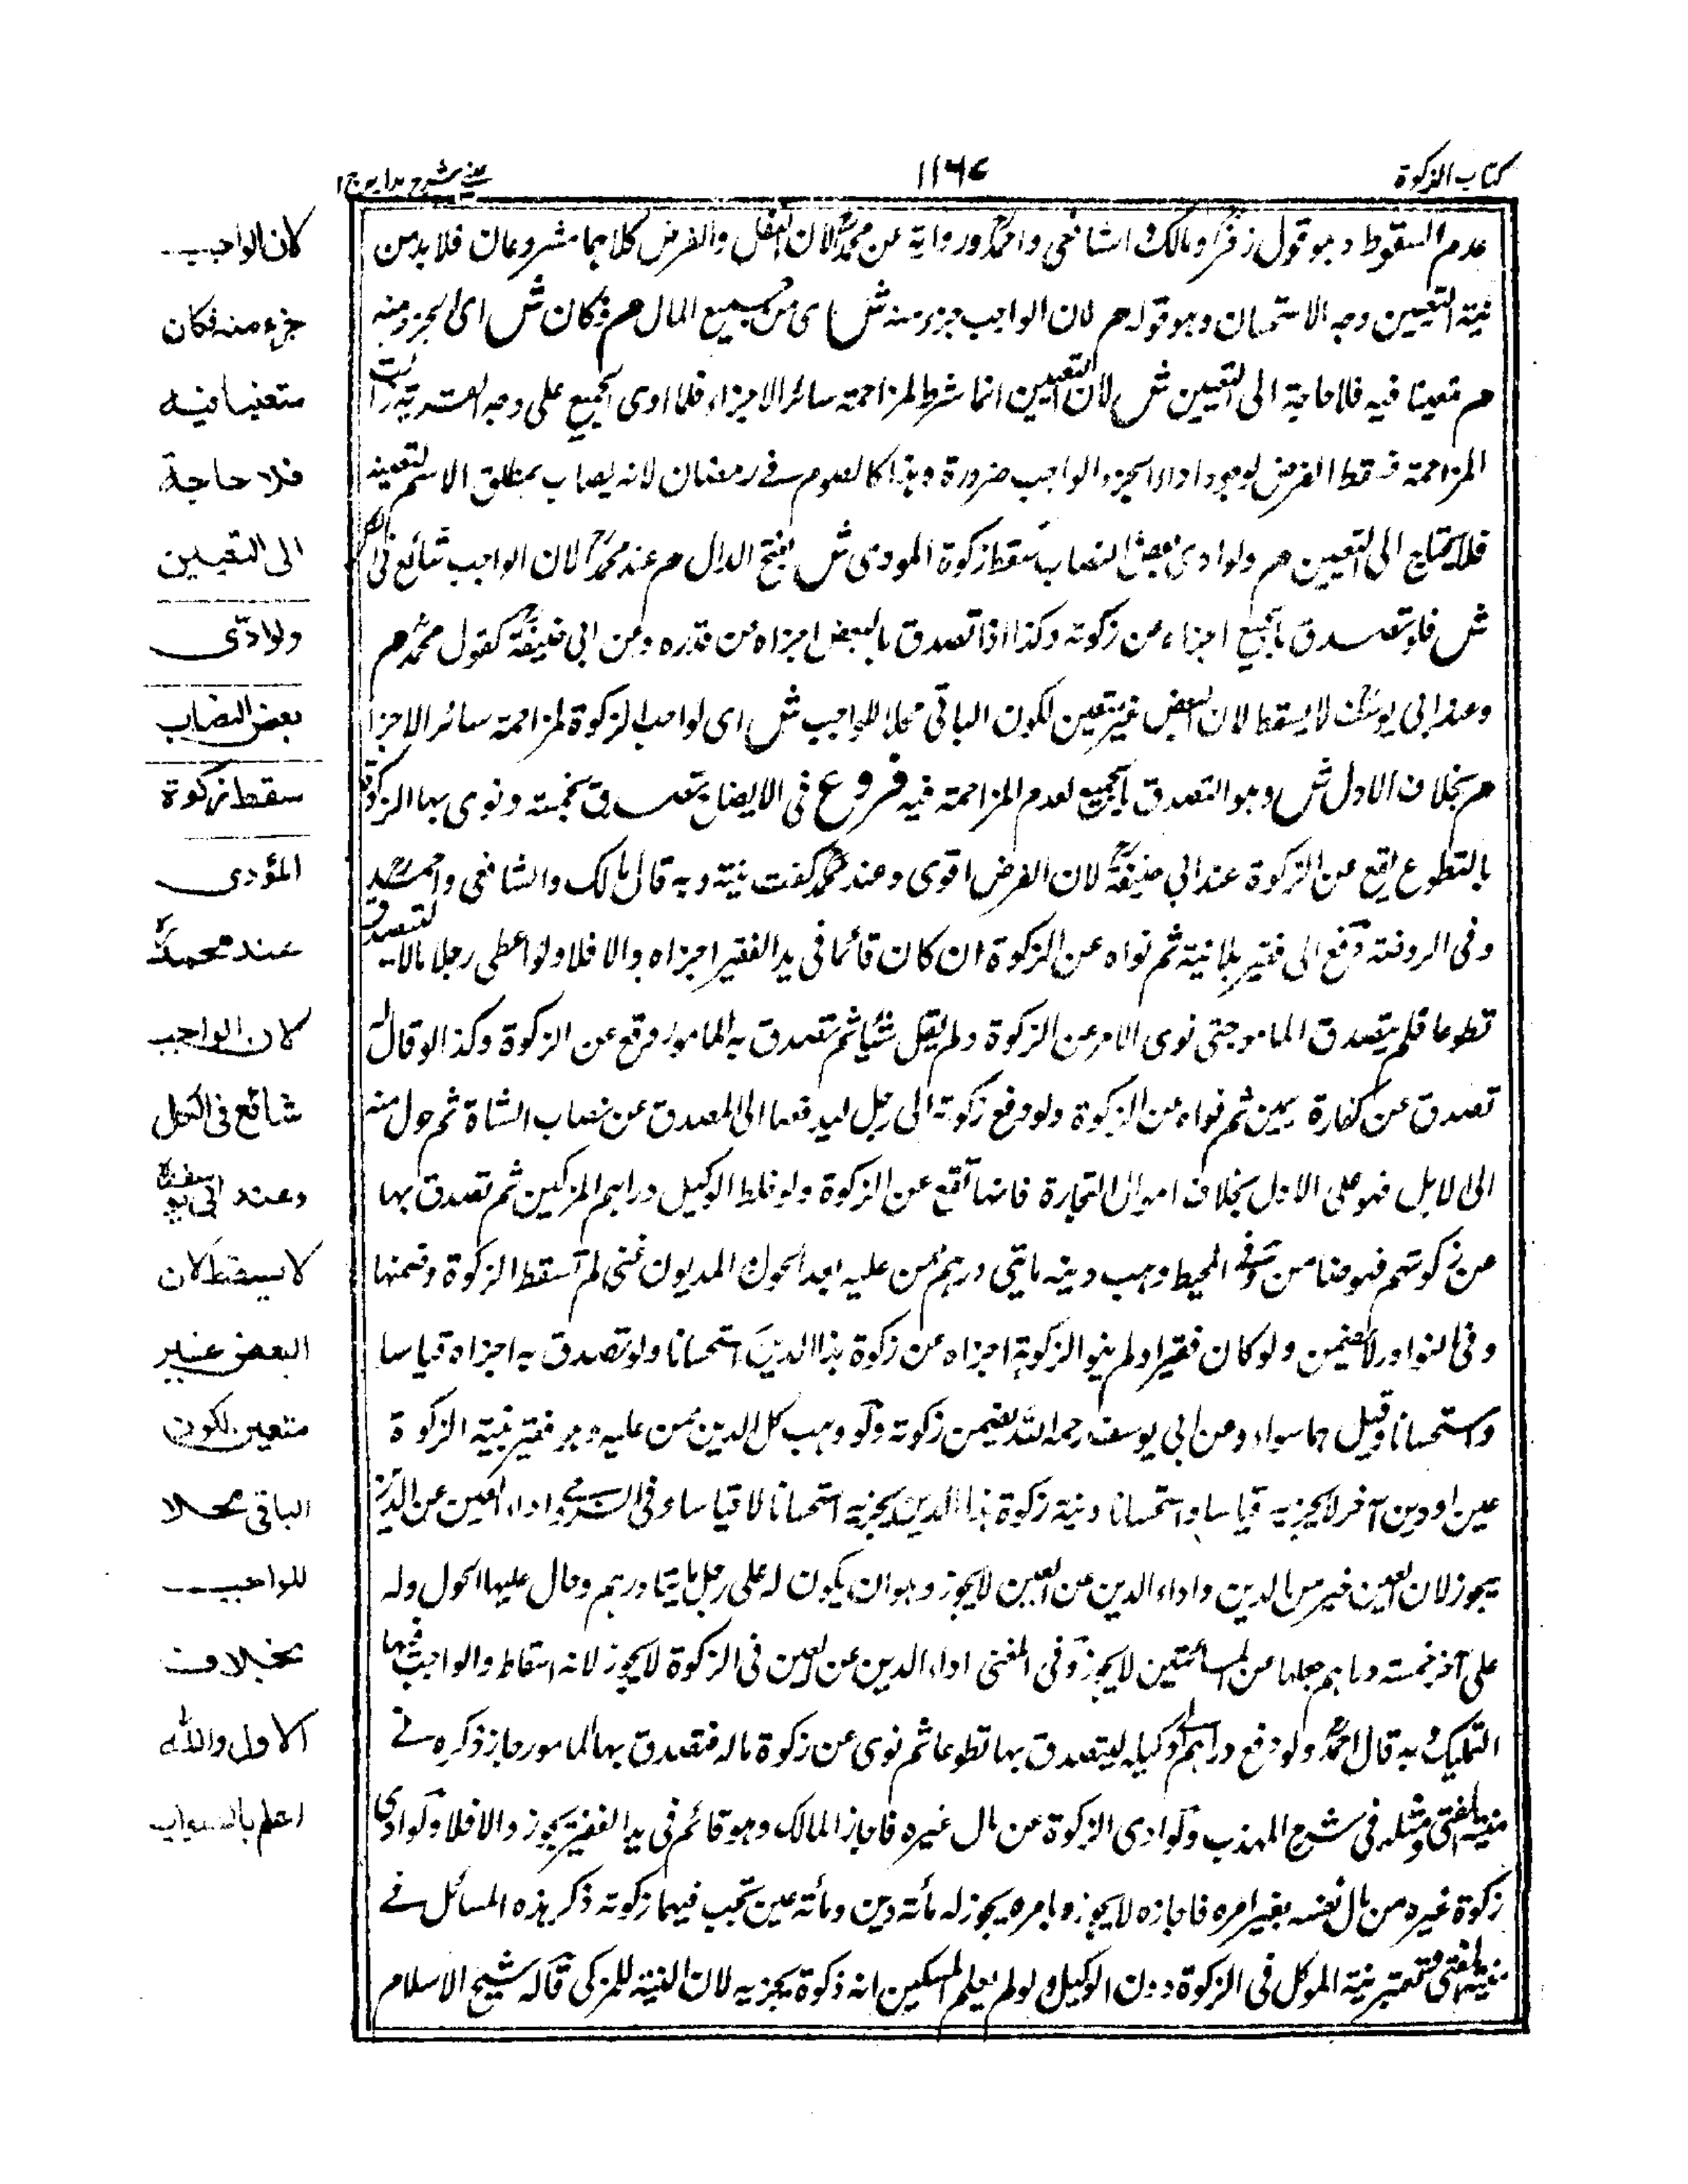 كتاب الزكوة
١١٦٧
عينى شرح هدايه ج١
عدم السقوط وهو قول زفرؒ ومالك والشافعي واحمدؒ ورواية عن محمدؒ لان النفل والفرض كلاهما مشروعان فلا بد من
نية التعيين وجه الاستحسان وهو قوله م لان الواجب جزء منه ش اى من جميع المال م فكان ش اى الجزء منه
م متعينا فيه فلا حاجة الى التعيين ش لان التعيين انما شرط لمزاحمة سائر الاجزاء فلما ادى الجميع على وجه القربة زالت
المزاحمة فسقط الفرض لوجود اداء الجزء الواجب ضرورة وهذا كالصوم فے رمضان لانه يصاب بمطلق الاسم لتعينه
فلا يحتاج الى التعيين م ولو ادى بعض النصاب سقط زكوة المودى ش بفتح الدال م عند محمدؒ لان الواجب شائع فى الكل
ش فلو تصدق بالجميع اجزاه عن زكوته وكذا اذا تصدق بالبعض اجزاه عن قدره وعن ابى حنيفةؒ كقول محمدؒ م
وعند ابى يوسفؒ لا يسقط لان البعض غير متعين لكون الباقى محلا للواجب ش اى لواجب الزكوة لمزاحمة سائر الاجزا
م بخلاف الاول ش وهو التصدق بالجميع لعدم المزاحمة فيه فروع فى الايضاح تصدق بخمسة ونوى بها الزكوة
بالتطوع يقع عن الزكوة عند ابي حنيفةؒ لان الفرض اقوى وعند محمدؒ لغت نيته وبه قال مالك والشافعى واحمد
وفى الروضة دفع الى فقير بلا نية ثم نواه عن الزكوة ان كان قائما فى يد الفقير اجزاه والا فلا ولو اعطى رجلا مالا ليتصدق
تطوعا فلم يتصدق المامور حتى نوى الامر عن الزكوة ولم يقل شيئا ثم تصدق به المامور وقع عن الزكوة وكذا لو قال له
تصدق عن كفارة يمين ثم نواه عن الزكوة ولو دفع زكوته الى رجل ليدفعها الى المصدق عن نصاب الشاة ثم حول منه
الى الابل فهو على الاول بخلاف اموال التجارة فانها تقع عن الزكوة ولو خلط الوكيل دراهم المزكين ثم تصدق بها
عن زكوتهم فهو ضامن وفے المحيط وهب دينه مائتى درهم ممن عليه بعد الحول المديون غنى لم تسقط الزكوة وضمنها
وفى النوادر لا يضمن ولو كان فقيرا ولم ينو الزكوة اجزاه عن زكوة هذا الدين استحسانا ولو تصدق به اجزاه قياسا
واستحسانا وقيل هما سواء وعن ابى يوسف رحمه الله يضمن زكوته ولو وهب كل الدين ممن عليه وهو فقير بنية الزكوة
عين او دين آخر لا يجزيه قياسا واستحسانا ونية زكوة هذا الدين يجزيه استحسانا لا قياسا وفى السروجى اداء العين عن الدين
يجوز لان العين خير من الدين واداء الدين عن العين لا يجوز وهو ان يكون له على رجل مائتا درهم وحال عليها الحول وله
على آخر خمسة دراهم جعلها عن المائتين لا يجوز وفى المغنى اداء الدين عن العين فى الزكوة لا يجوز لانه اسقاط والواجب فيها
التمليك وبه قال احمدؒ ولو دفع دراهم الے وكيله ليتصدق بها تطوعا ثم نوى عن زكوة ماله فتصدق بها المامور جاز ذكره فے
منية المفتى ومثله فى شرح المهذب ولو ادى الزكوة من مال غيره فاجاز المالك وهو قائم فى يد الفقير يجوز والا فلا ولو ادى
زكوة غيره من مال نفسه بغير امره فاجازه لا يجوز وبامره يجوز له مأئة دين ومأئة عين تجب فيهما زكوته ذكر هذه المسائل فے
منية المفتى وتعتبر نية الموكل فى الزكوة دون الوكيل ولو لم يعلم المسكين انه زكوة يجزيه لان النية للمزكى قاله شيخ الاسلام
لان الواجب
جزء منه فكان
متعينا فيه
فلا حاجة
الى التعيين
ولو ادّى
بعض النصاب
سقط زكوة
المؤدى
عند محمدؒ
لان الواجب
شائع فى الكل
وعند ابى يوسفؒ
لا يسقط لان
البعض غير
متعين لكون
الباقى محلا
للواجب
بخلاف
الاول والله
اعلم بالصواب